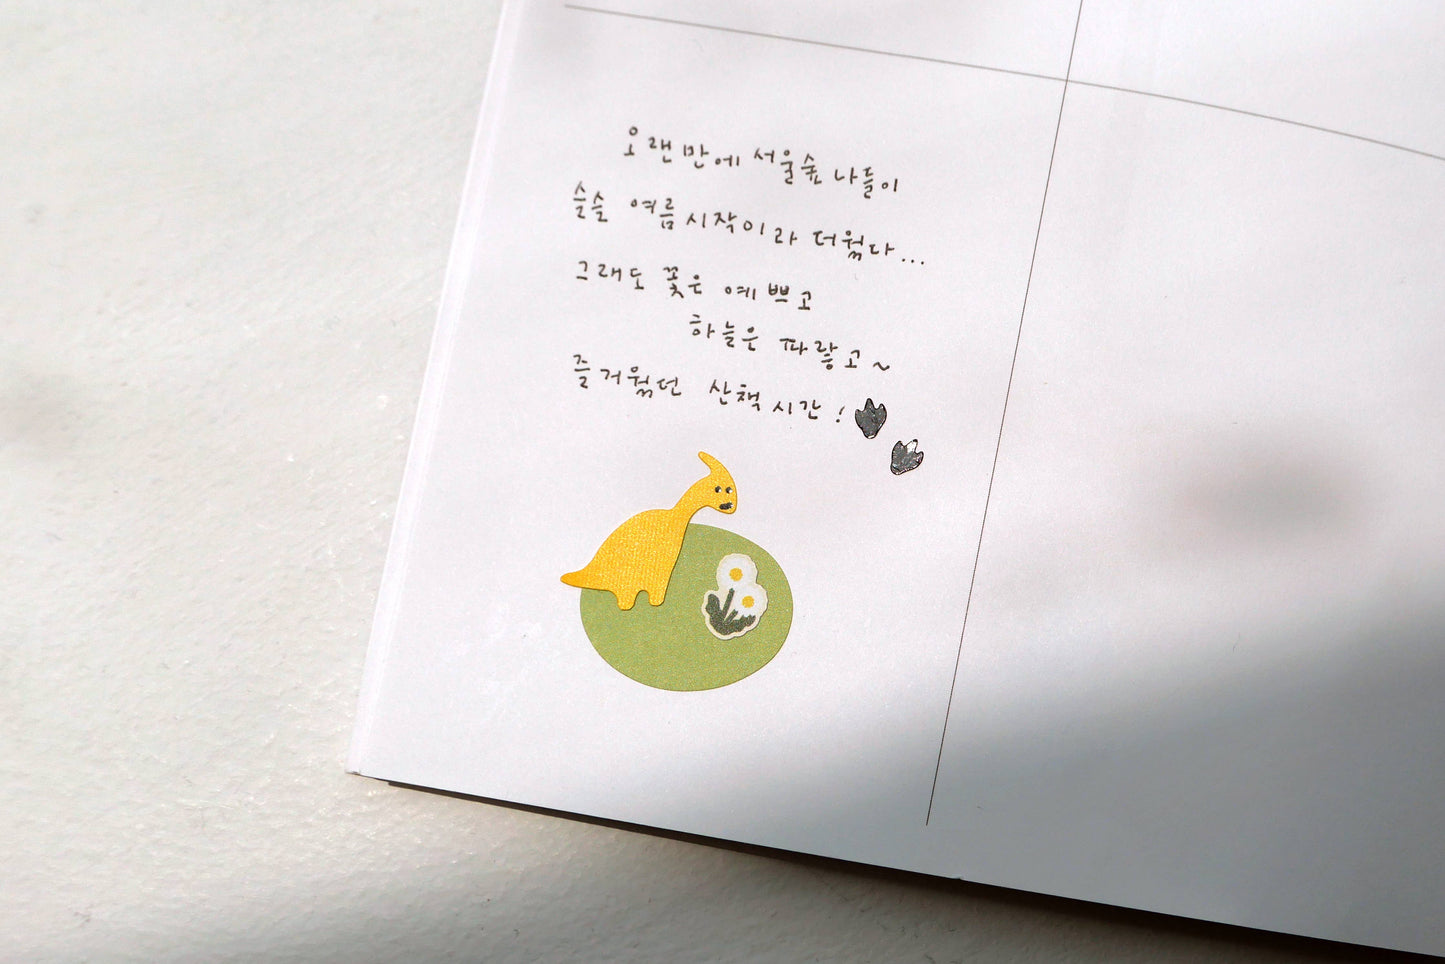 오랜만에 서울숲 나들이
슬슬 여름 시작이라 더웠다...
그래도 꽃은 예쁘고
하늘은 파랗고~
즐거웠던 산책 시간!